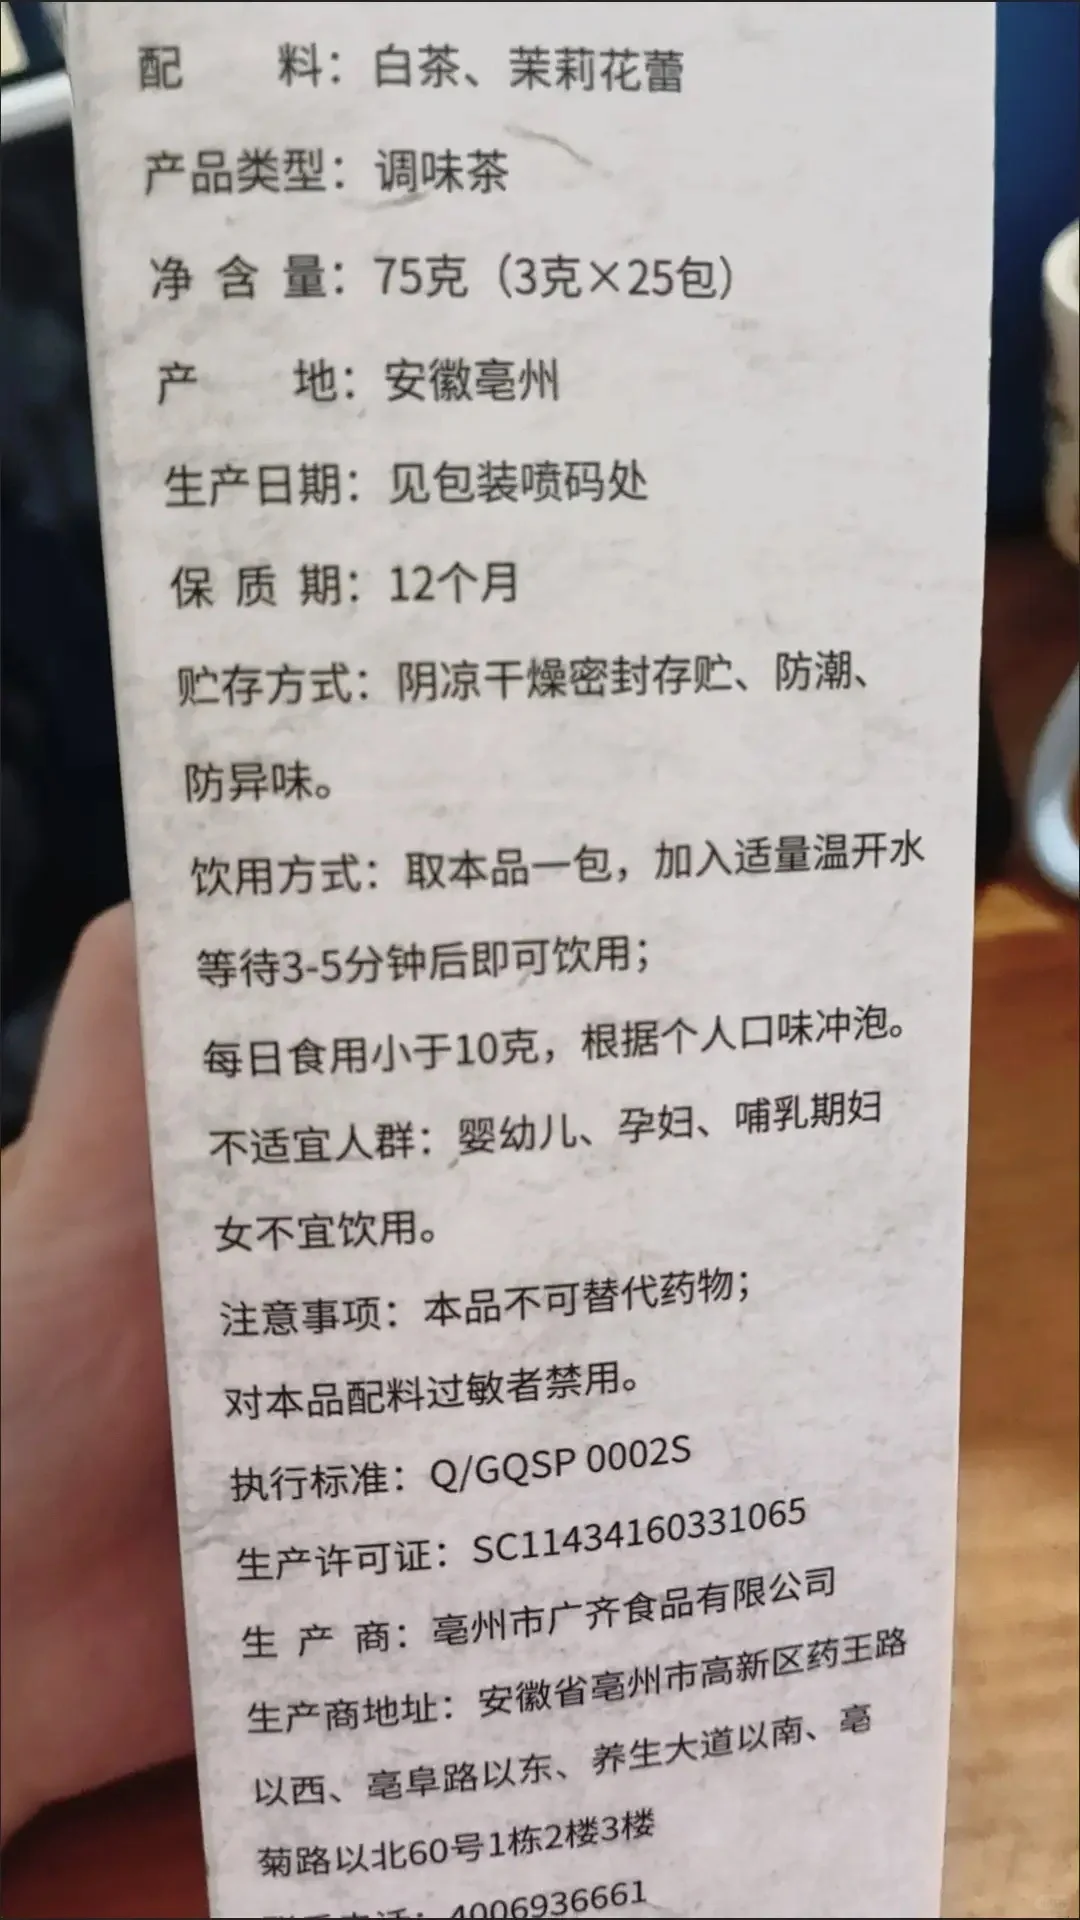 配料：白茶、茉莉花蕾
产品类型：调味茶
净含量：75克（3克×25包）
产地：安徽亳州
生产日期：见包装喷码处
保质期：12个月
贮存方式：阴凉干燥密封存贮、防潮、
防异味。
饮用方式：取本品一包，加入适量温开水
等待3-5分钟后即可饮用；
每日食用小于10克，根据个人口味冲泡。
不适宜人群：婴幼儿、孕妇、哺乳期妇
女不宜饮用。
注意事项：本品不可替代药物；
对本品配料过敏者禁用。
执行标准：Q/GQSP 0002S
生产许可证：SC11434160331065
生产商：亳州市广齐食品有限公司
生产商地址：安徽省亳州市高新区药王路
以西、亳阜路以东、养生大道以南、亳
菊路以北60号1栋2楼3楼
4006936661